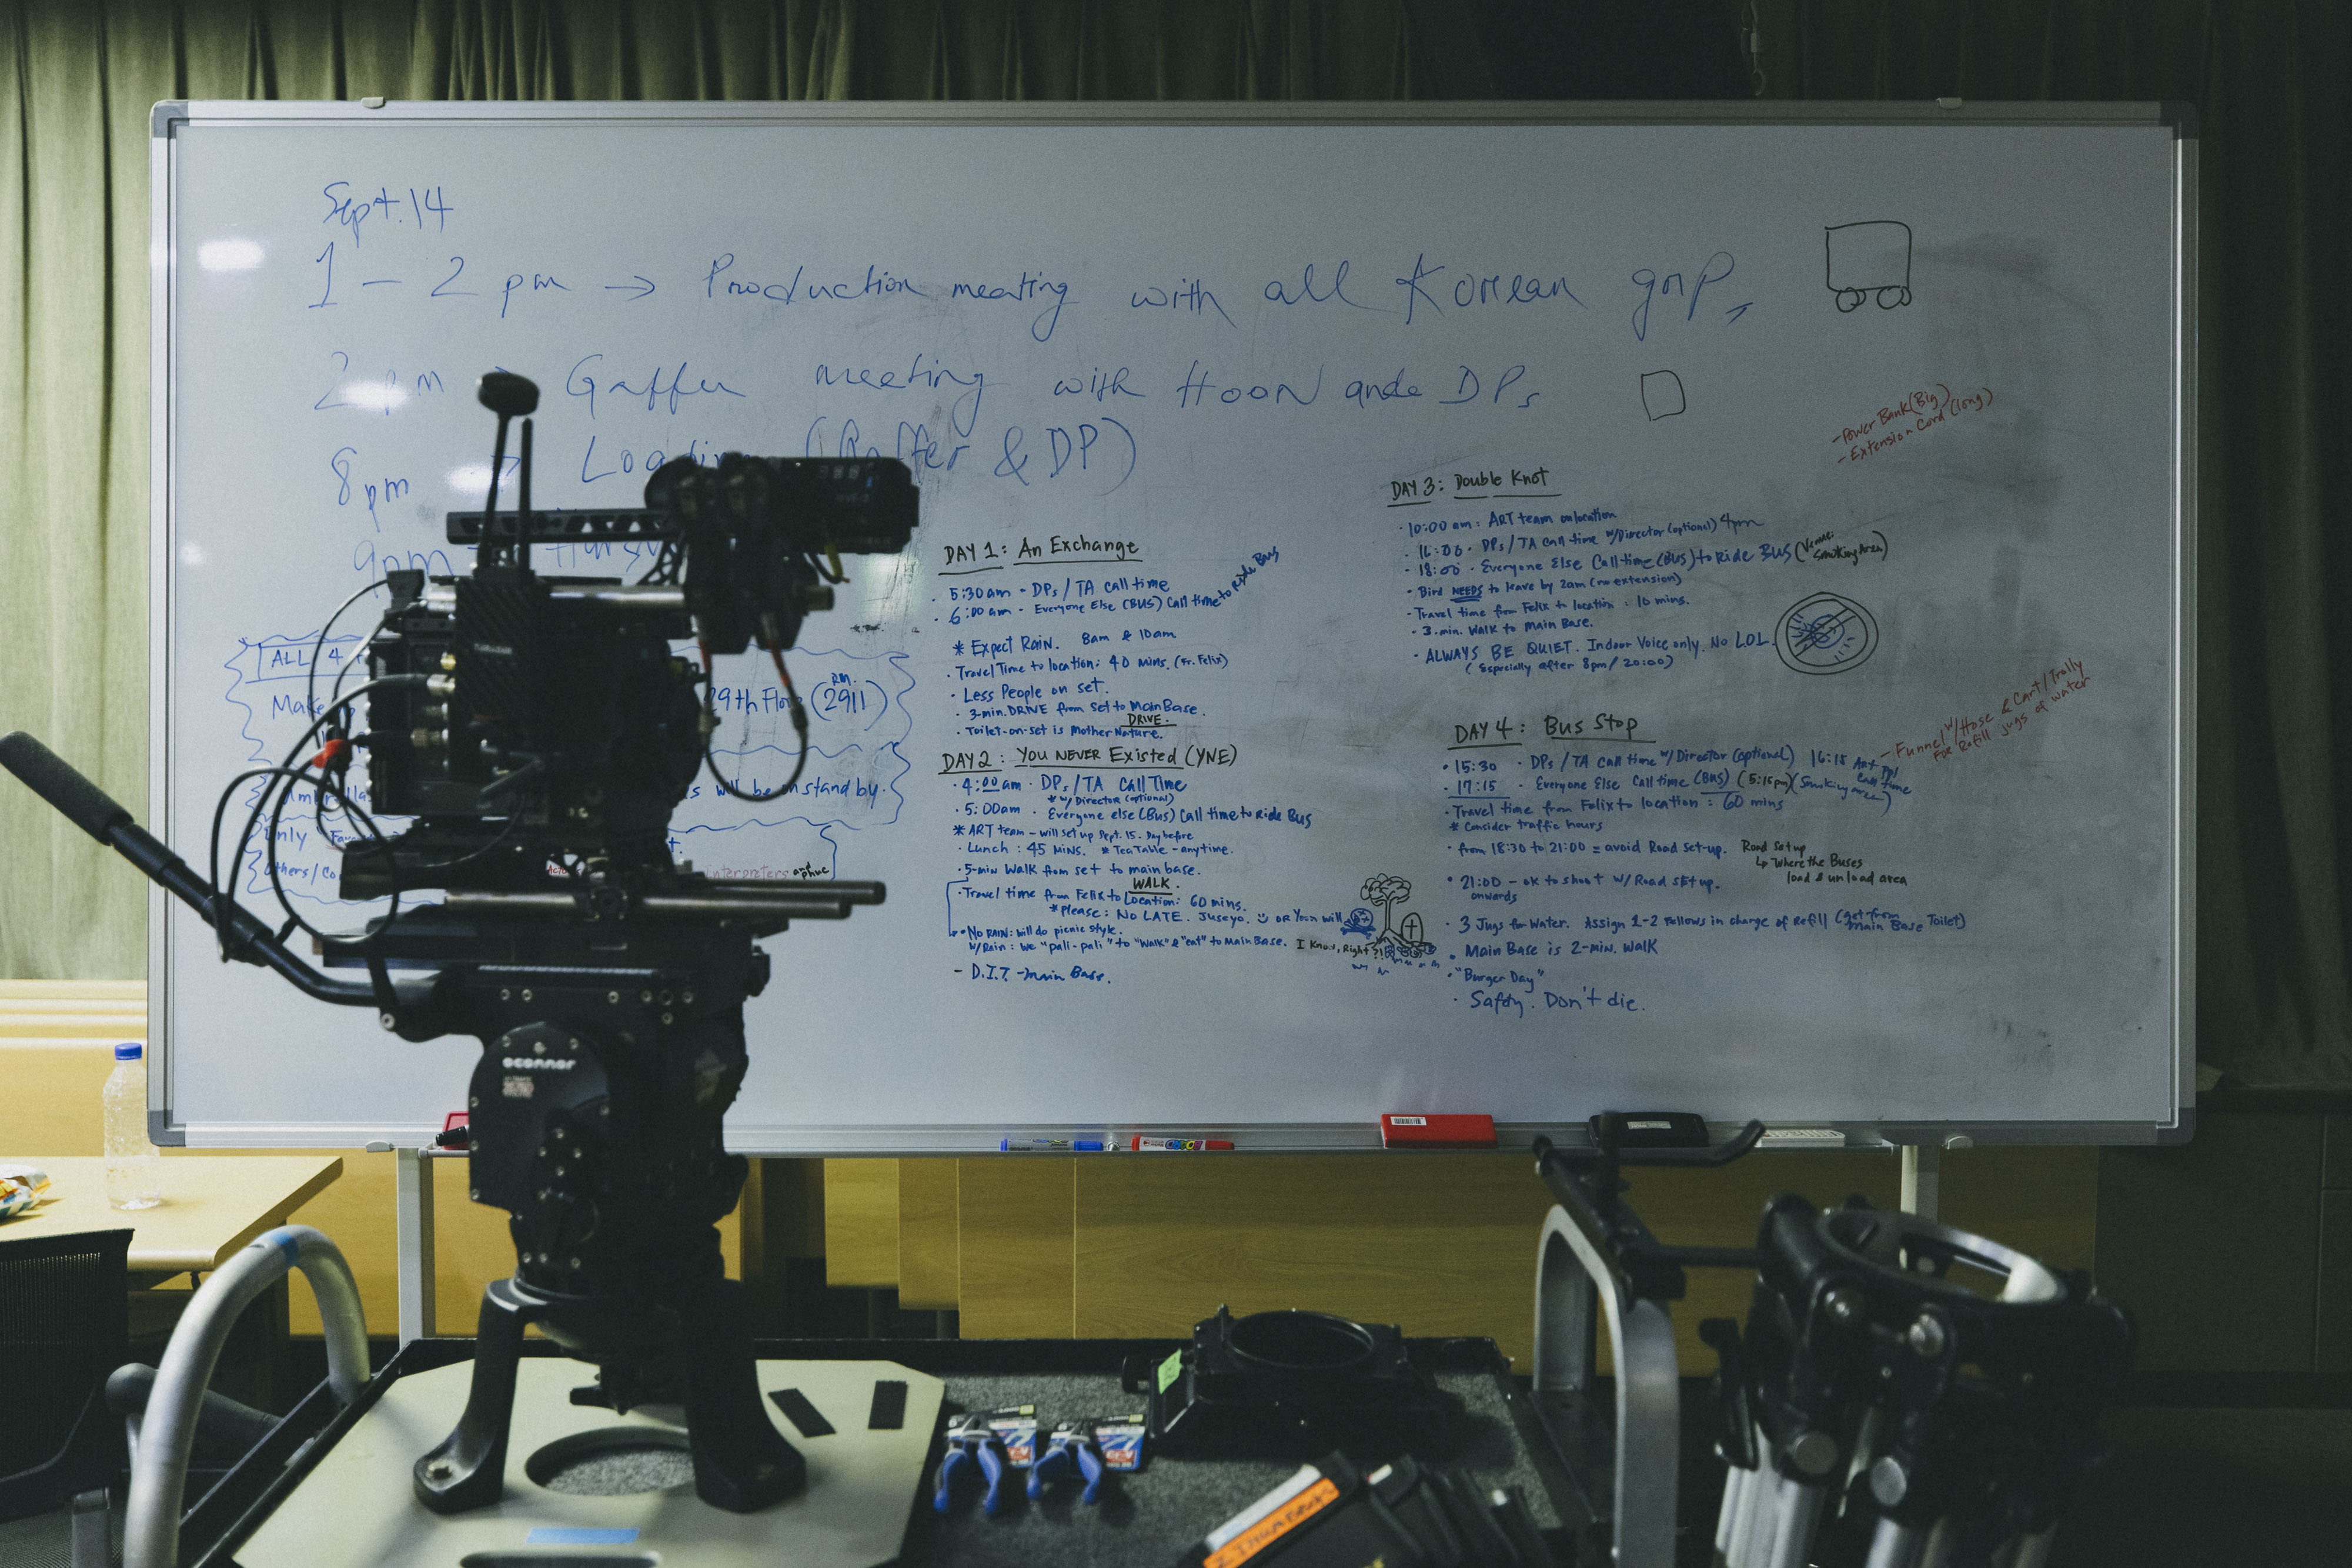 Sept. 14
1 - 2 pm → Production meeting with all Korean
2 pm → Gaffer meeting with HOON and DPs
8 pm → Loading (Gaffer & DP)
9pm
ALL 4
Make 29th Floor (RM. 2911)
will be on stand by.
Only
Others/Co interpreters and
- Power Bank (Big)
- Extension Cord (long)
DAY 1: An Exchange
· 5:30 am - DPs / TA call time
· 6:00 am - Everyone Else (BUS) Call time to ride Bus
* Expect Rain. 8am & 10am
· Travel Time to location: 40 mins. (Fr. Felix)
· Less People on set.
· 3-min. DRIVE from set to Main Base.
DRIVE.
· Toilet-on-set is Mother Nature.
DAY 2: You NEVER Existed (YNE)
· 4:00 am · DPs / TA Call Time
* w/ Director (optional)
· 5:00am · Everyone else (Bus) Call time to ride Bus
* ART team - will set up Sept. 15. Day before
· Lunch: 45 MINS. * Tea Table - anytime.
· 5-min Walk from set to main base.
WALK.
· Travel time from Felix to Location: 60 mins.
* Please: No LATE. Juseyo. OR Yoon will
· No RAIN: will do picnic style.
w/Rain: We "pali-pali" to "walk" & "eat" to Main Base. I Know, Right?!
- D.I.T. - main Base.
DAY 3: Double Knot
· 10:00 am: ART team on location
· 16:00 · DPs / TA call time w/Director (optional) 4pm
· 18:00 · Everyone Else Call time (BUS) to Ride BUS (Venue: Smoking Area)
· Bird NEEDS to leave by 2am (no extension)
· Travel time from Felix to location: 10 mins.
· 3-min. Walk to Main Base.
· ALWAYS BE QUIET. Indoor Voice only. No L.O.L.
(Especially after 8pm / 20:00)
DAY 4: Bus Stop
· 15:30 · DPs / TA call time w/Director (optional) 16:15 Art call time
· 17:15 · Everyone Else Call time (BUS) (5:15pm) (Smoking area)
· Travel time from Felix to location: 60 mins
* Consider traffic hours
· from 18:30 to 21:00 = avoid Road set-up. Road set up
↳ Where the Buses load & unload area
· 21:00 - ok to shoot w/ Road setup.
onwards
· 3 Jugs for Water. Assign 1-2 Fellows in charge of Refill (get from main Base Toilet)
· Main Base is 2-min. walk
· "Burger Day"
· Safety. Don't die.
- Funnel w/Hose & Cart/Trolly
For Refill jugs of water
oconnor